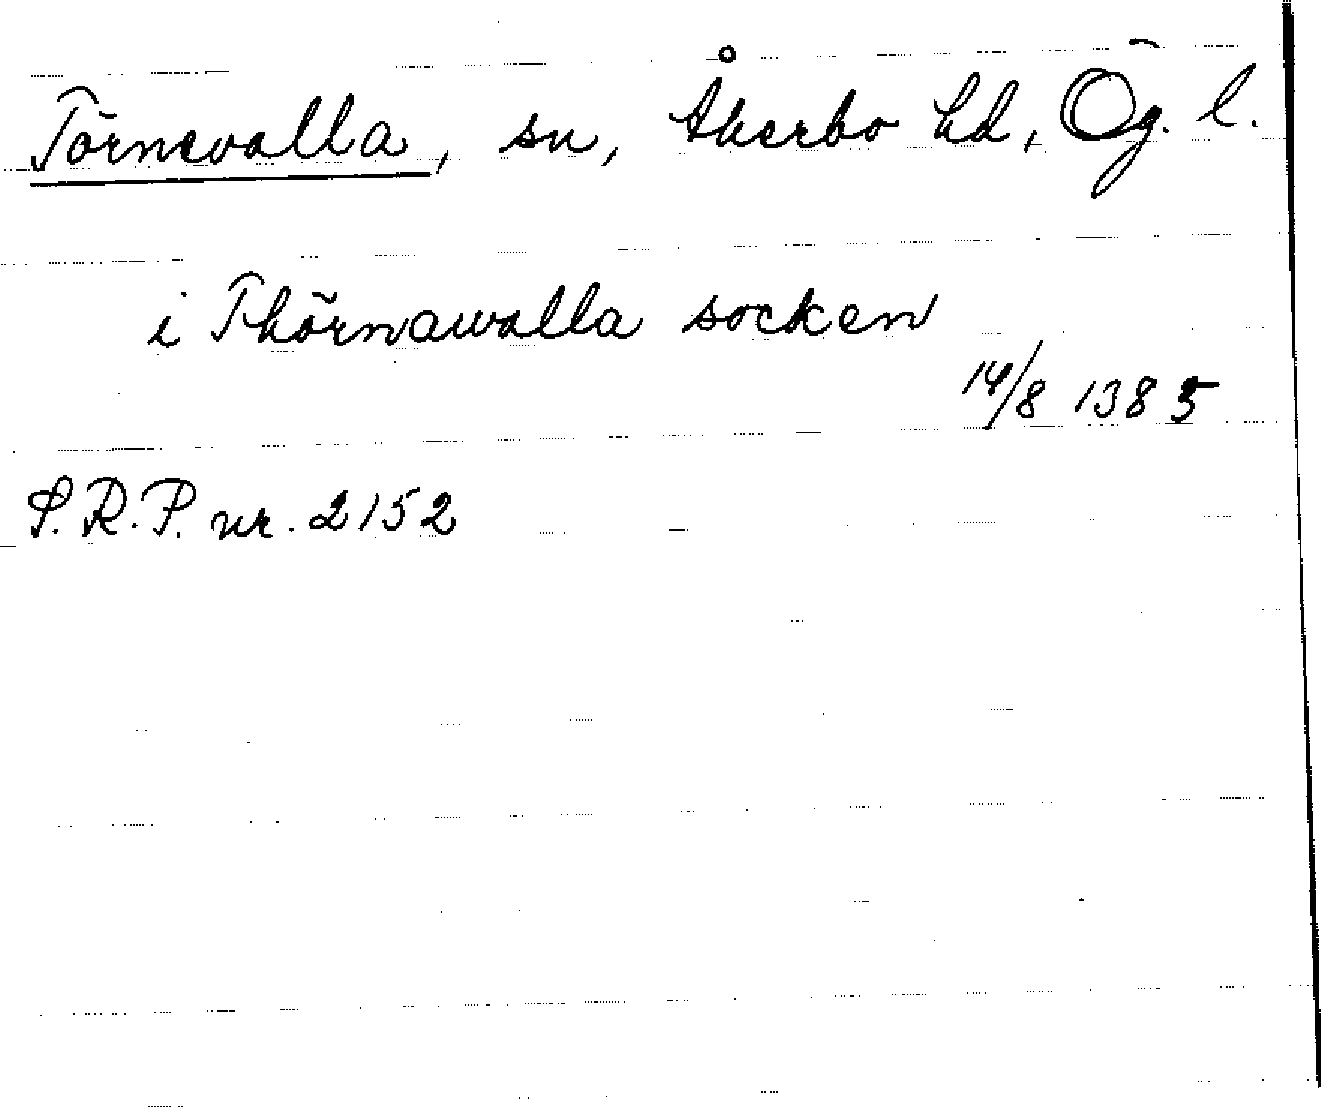 Törnevalla, sn, Åkerbo hd, Ög. l.
i Thörnawalla socken
14/8 1385
S.R.P. nr. 2152